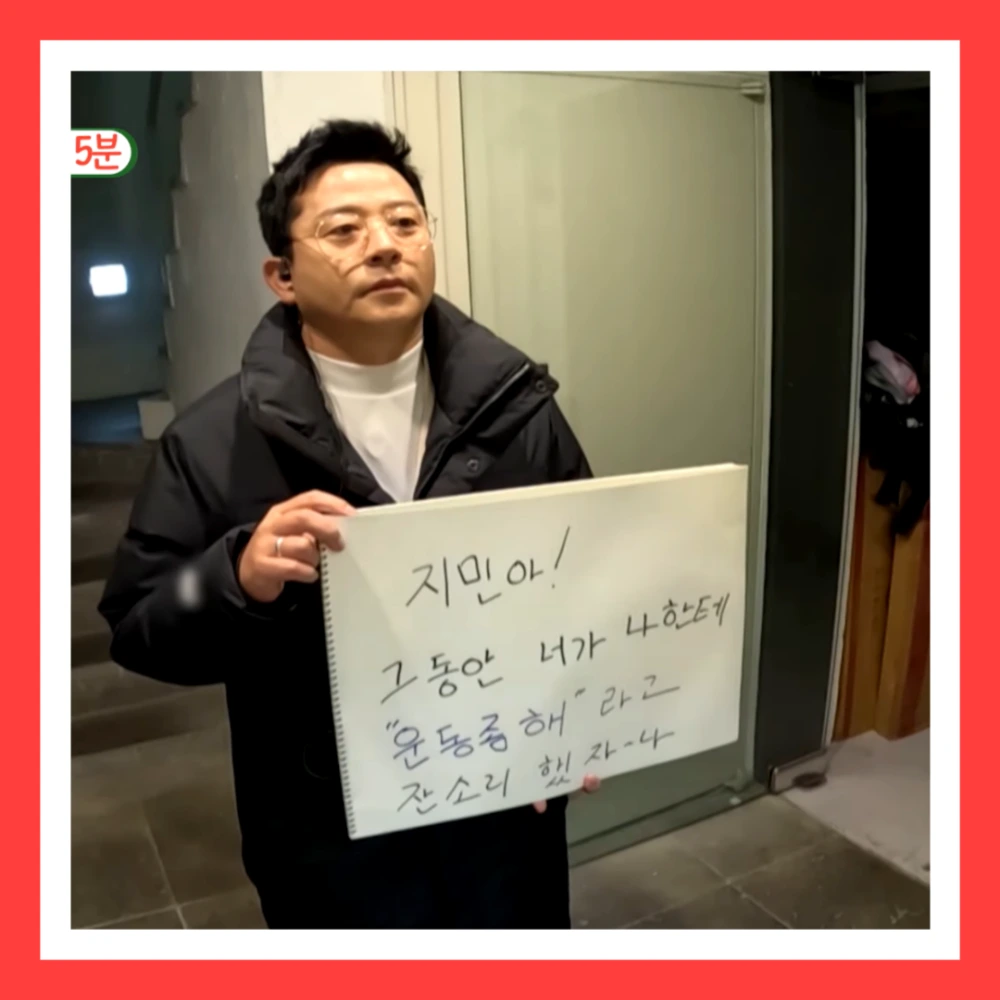 5분
지민아!
그동안 너가 나한테
"운동좀해" 라고
잔소리 했자-나